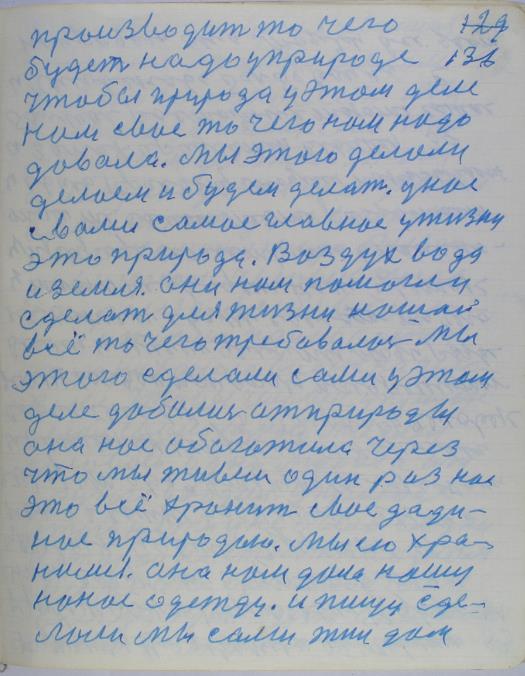 производит то чего 129
будет надо у природе 136
чтобы природа у этом деле
нам свое то чего нам надо
довала. Мы этого делали
делаем и будем делат. у нас
свами самое главное у жизни
это природа. Воздух вода
и земля. они нам помогли
сделат для жизни нашей
всё то чего требовалос Мы
этого сделали сами у этом
деле добалис от природы
она нас обогатила через
что мы живем один раз нас
это всё хранит свое
природою. мы ею хра-
нимы. она нам дала нашу
одежду. и пищу сде-
лали мы сами жил дом